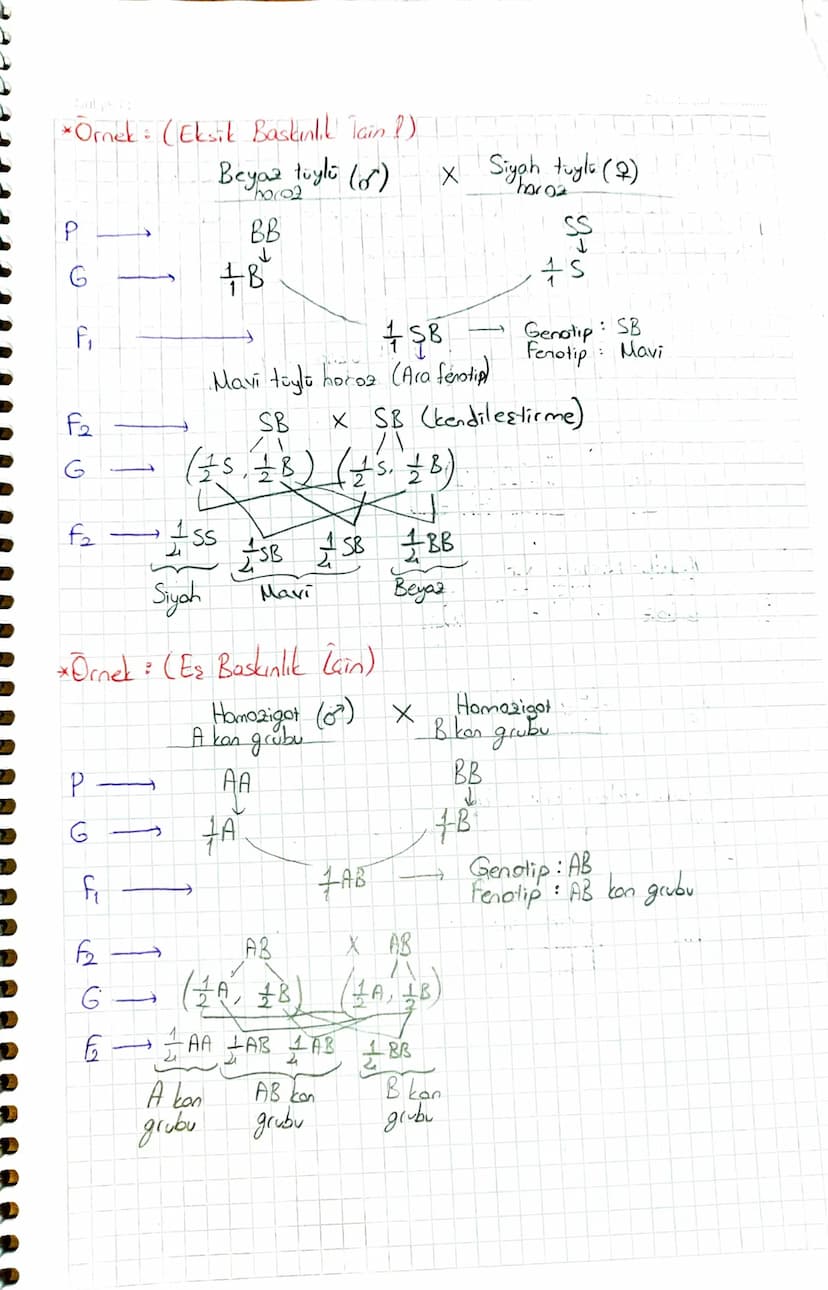 *Örnek : (Eksik Baskınlık İçin !)
Beyaz tüylü (♂) horoz X Siyah tüylü (♀) horoz
P → BB SS
G → 1/1 B 1/1 S
F₁ → 1/1 SB → Genotip : SB
Fenotip : Mavi
Mavi tüylü horoz (Ara fenotip)
F₂ → SB x SB (kendileştirme)
G → (1/2 S, 1/2 B) (1/2 S, 1/2 B)
F₂ → 1/4 SS 1/4 SB 1/4 SB 1/4 BB
Siyah Mavi Beyaz
*Örnek : (Eş Baskınlık İçin)
Homozigot (♂) X Homozigot
A kan grubu B kan grubu
P → AA BB
G → 1/1 A 1/1 B
F₁ → 1/1 AB → Genotip : AB
Fenotip : AB kan grubu
F₂ → AB X AB
G → (1/2 A, 1/2 B) (1/2 A, 1/2 B)
F₂ → 1/4 AA 1/4 AB 1/4 AB 1/4 BB
A kan AB kan B kan
grubu grubu grubu